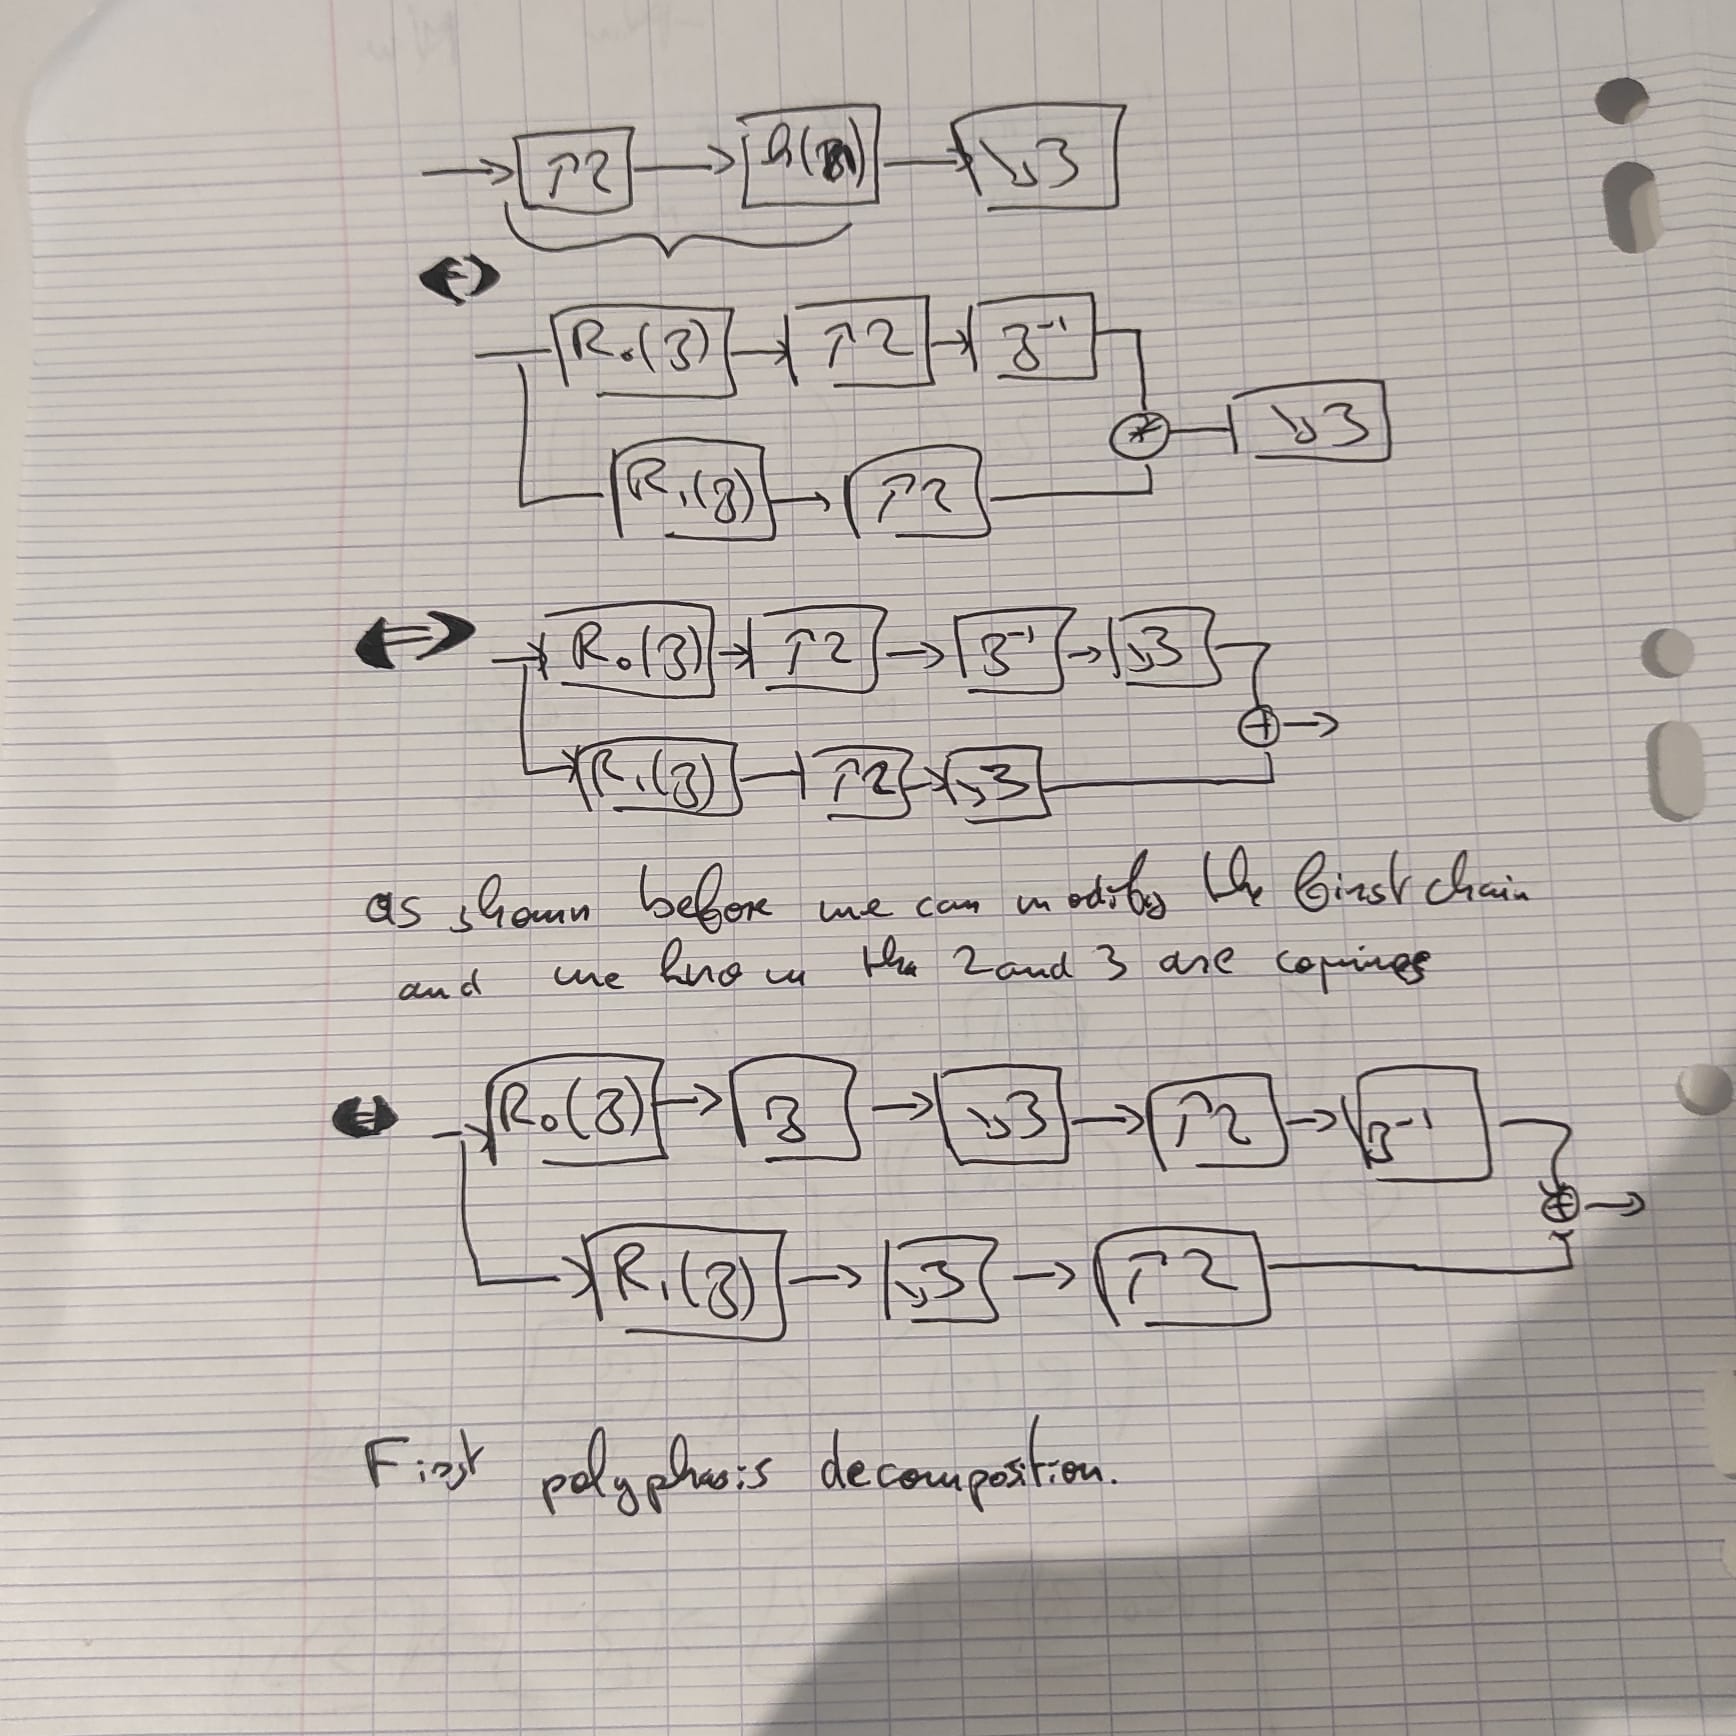 → ↑2 → h(n) → ↓3
⇔
R₀(z) → ↑2 → z⁻¹
↓3
R₁(z) → ↑2
⇔ → R₀(z) → ↑2 → z⁻¹ → ↓3
+ →
R₁(z) → ↑2 → ↓3
as shown before we can modify the first chain
and we know the 2 and 3 are
⇔ → R₀(z) → z → ↓3 → ↑2 → z⁻¹
+ →
→ R₁(z) → ↓3 → ↑2
First polyphasis decomposition.